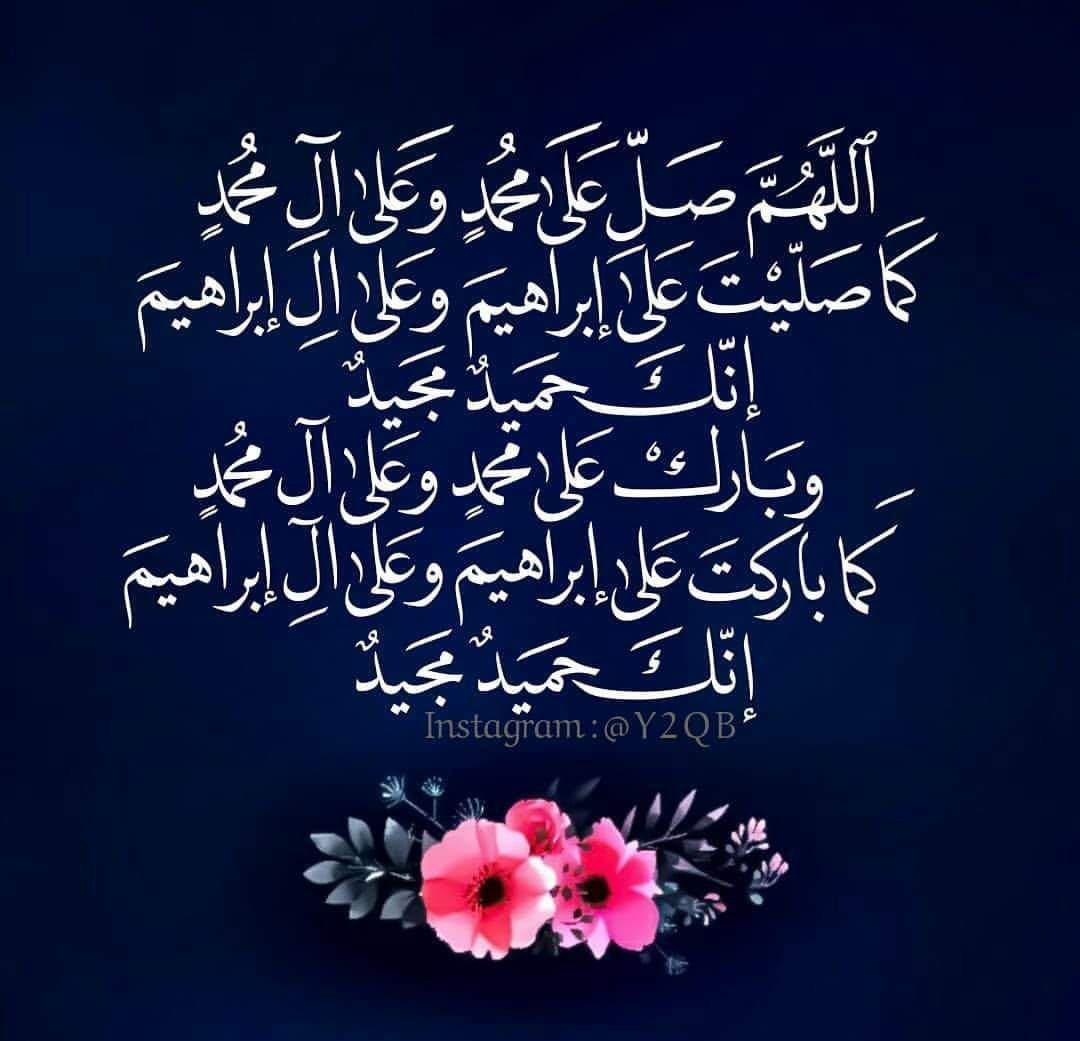 ٱللَّهُمَّ صَلِّ عَلَىٰ مُحَمَّدٍ وَعَلىٰ آلِ مُحَمَّدٍ
كَمَا صَلَّيْتَ عَلَىٰ إِبراهيمَ وَعَلىٰ الِ إِبراهيمَ
إِنّكَ حَمَيدٌ مَجَيدٌ
وَبَارِكْ عَلىٰ مَحمدٍ وعَلىٰ آل مُحَمدٍ
كَما باركتَ عَلىٰ إِبراهيمَ وعَلىٰ آلِ إِبراهيمَ
إِنّكَ حَميَدٌ مَجَيدٌ
Instagram : @Y2QB